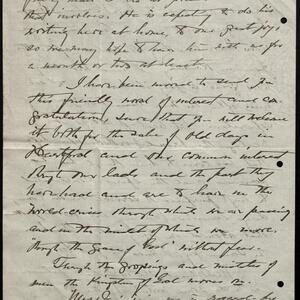 that involves. He is expecting to do his
writing here at home, to our great joy,
so we may hope to have him with us for
a month or two at least.
I have been moved to send you
this friendly word of interest and con-
gratulation, sure that you will believe
it both for the sake of old days in
Hartford and our common interest
through our lads and the part they
have had and are to have in the
world-crisis through which we are passing
and in the midst of which we move,
through the grace of God, without fear.
Through the gropings and mistakes of
men the Kingdom of God moves on.